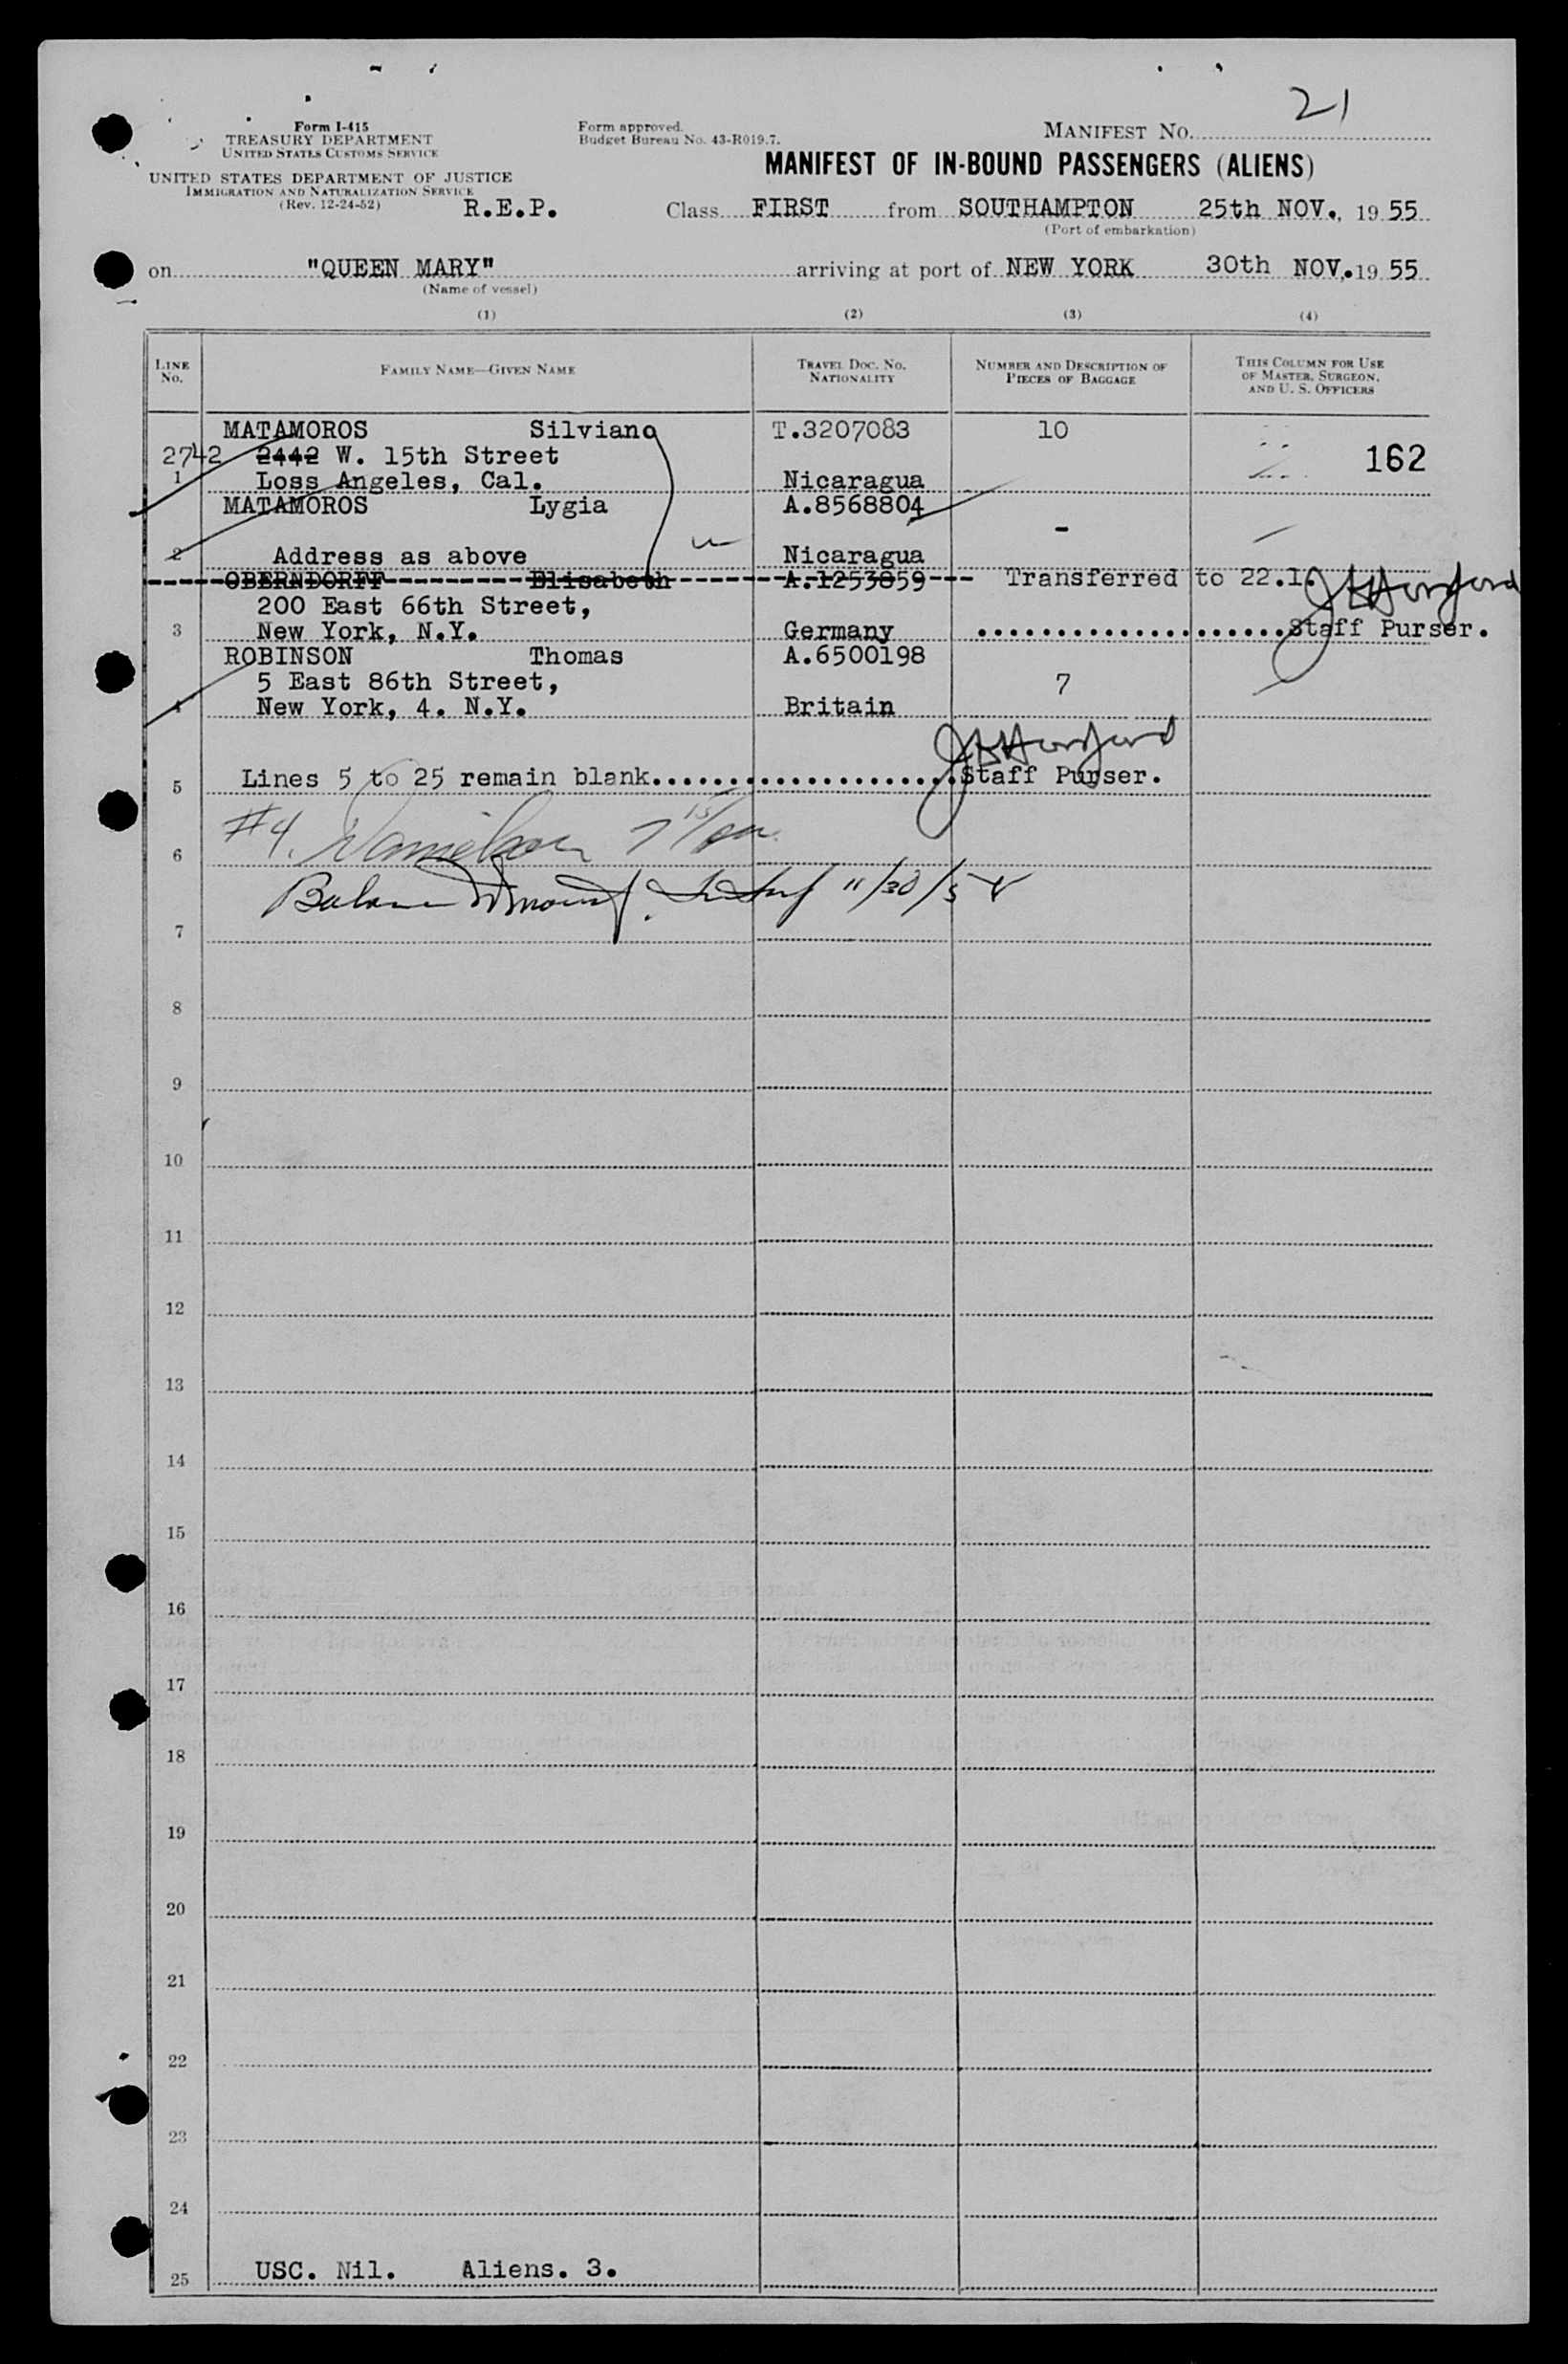 21
Form I-415
TREASURY DEPARTMENT
UNITED STATES CUSTOMS SERVICE
UNITED STATES DEPARTMENT OF JUSTICE
IMMIGRATION AND NATURALIZATION SERVICE
(Rev. 12-24-52)
R.E.P.
Form approved.
Budget Bureau No. 43-R019.7.
MANIFEST NO.
MANIFEST OF IN-BOUND PASSENGERS (ALIENS)
Class FIRST from SOUTHAMPTON 25th NOV., 19 55
(Port of embarkation)
on "QUEEN MARY" arriving at port of NEW YORK 30th NOV. 19 55
(Name of vessel)
(1) (2) (3) (4)
LINE No. FAMILY NAME—GIVEN NAME TRAVEL DOC. NO. NATIONALITY NUMBER AND DESCRIPTION OF PIECES OF BAGGAGE THIS COLUMN FOR USE OF MASTER, SURGEON, AND U. S. OFFICERS
MATAMOROS Silviano T.3207083 10
2742 2442 W. 15th Street 162
1 Loss Angeles, Cal. Nicaragua
MATAMOROS Lygia A.8568804
-
2 Address as above Nicaragua
OBERNDORFF Elisabeth A.1253859 Transferred to 22.1.
200 East 66th Street,
3 New York, N.Y. Germany Staff Purser.
ROBINSON Thomas A.6500198
5 East 86th Street, 7
4 New York, 4. N.Y. Britain
5 Lines 5 to 25 remain blank. Staff Purser.
#4.
6
11/30/5
7
8
9
10
11
12
13
14
15
16
17
18
19
20
21
22
23
24
25 USC. Nil. Aliens. 3.